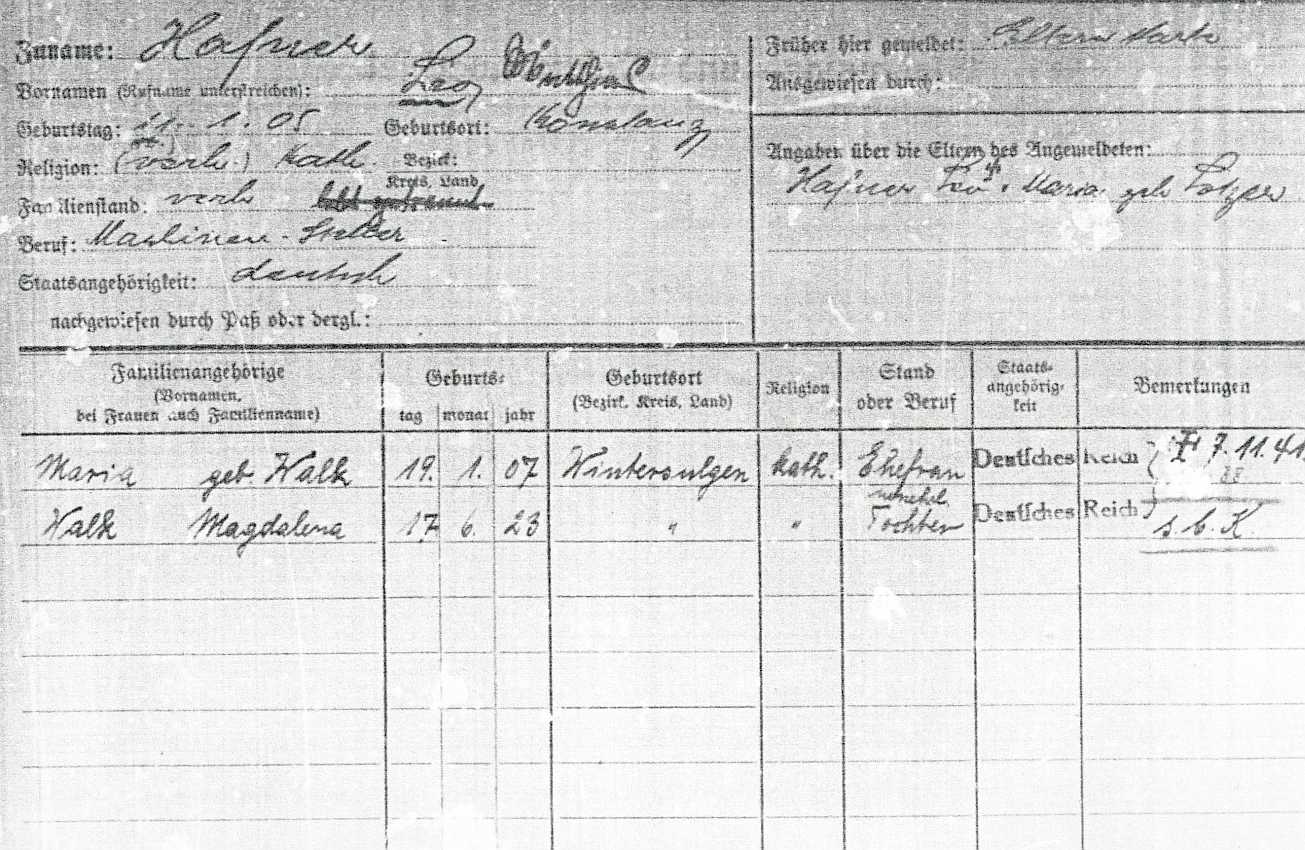 Zuname: Hafner
Vornamen (Rufname unterstreichen): Leo
Geburtstag: 11. 1. 05 Geburtsort: Konstanz
Religion: (verh.) kath. Bezirk:
Kreis, Land
Familienstand: verh
Beruf: Maschinen-
Staatsangehörigkeit: deutsch
nachgewiesen durch Paß oder dergl.:
Früher hier gemeldet: Eltern Karte
Ausgewiesen durch:
Angaben über die Eltern des Angemeldeten:
Hafner Leo u. Maria geb Lotzer
Familienangehörige Geburts= Geburtsort Religion Stand Staats= Bemerkungen
(Vornamen, (Bezirk, Kreis, Land) oder Beruf angehörig=
bei Frauen auch Familienname) tag monat jahr keit
Maria geb. Walk 19. 1. 07 Wintersulgen kath. Ehefrau Deutsches Reich 7.11.41.
unehel.
Walk Magdalena 17 6. 23 " " Tochter Deutsches Reich s. b. K.